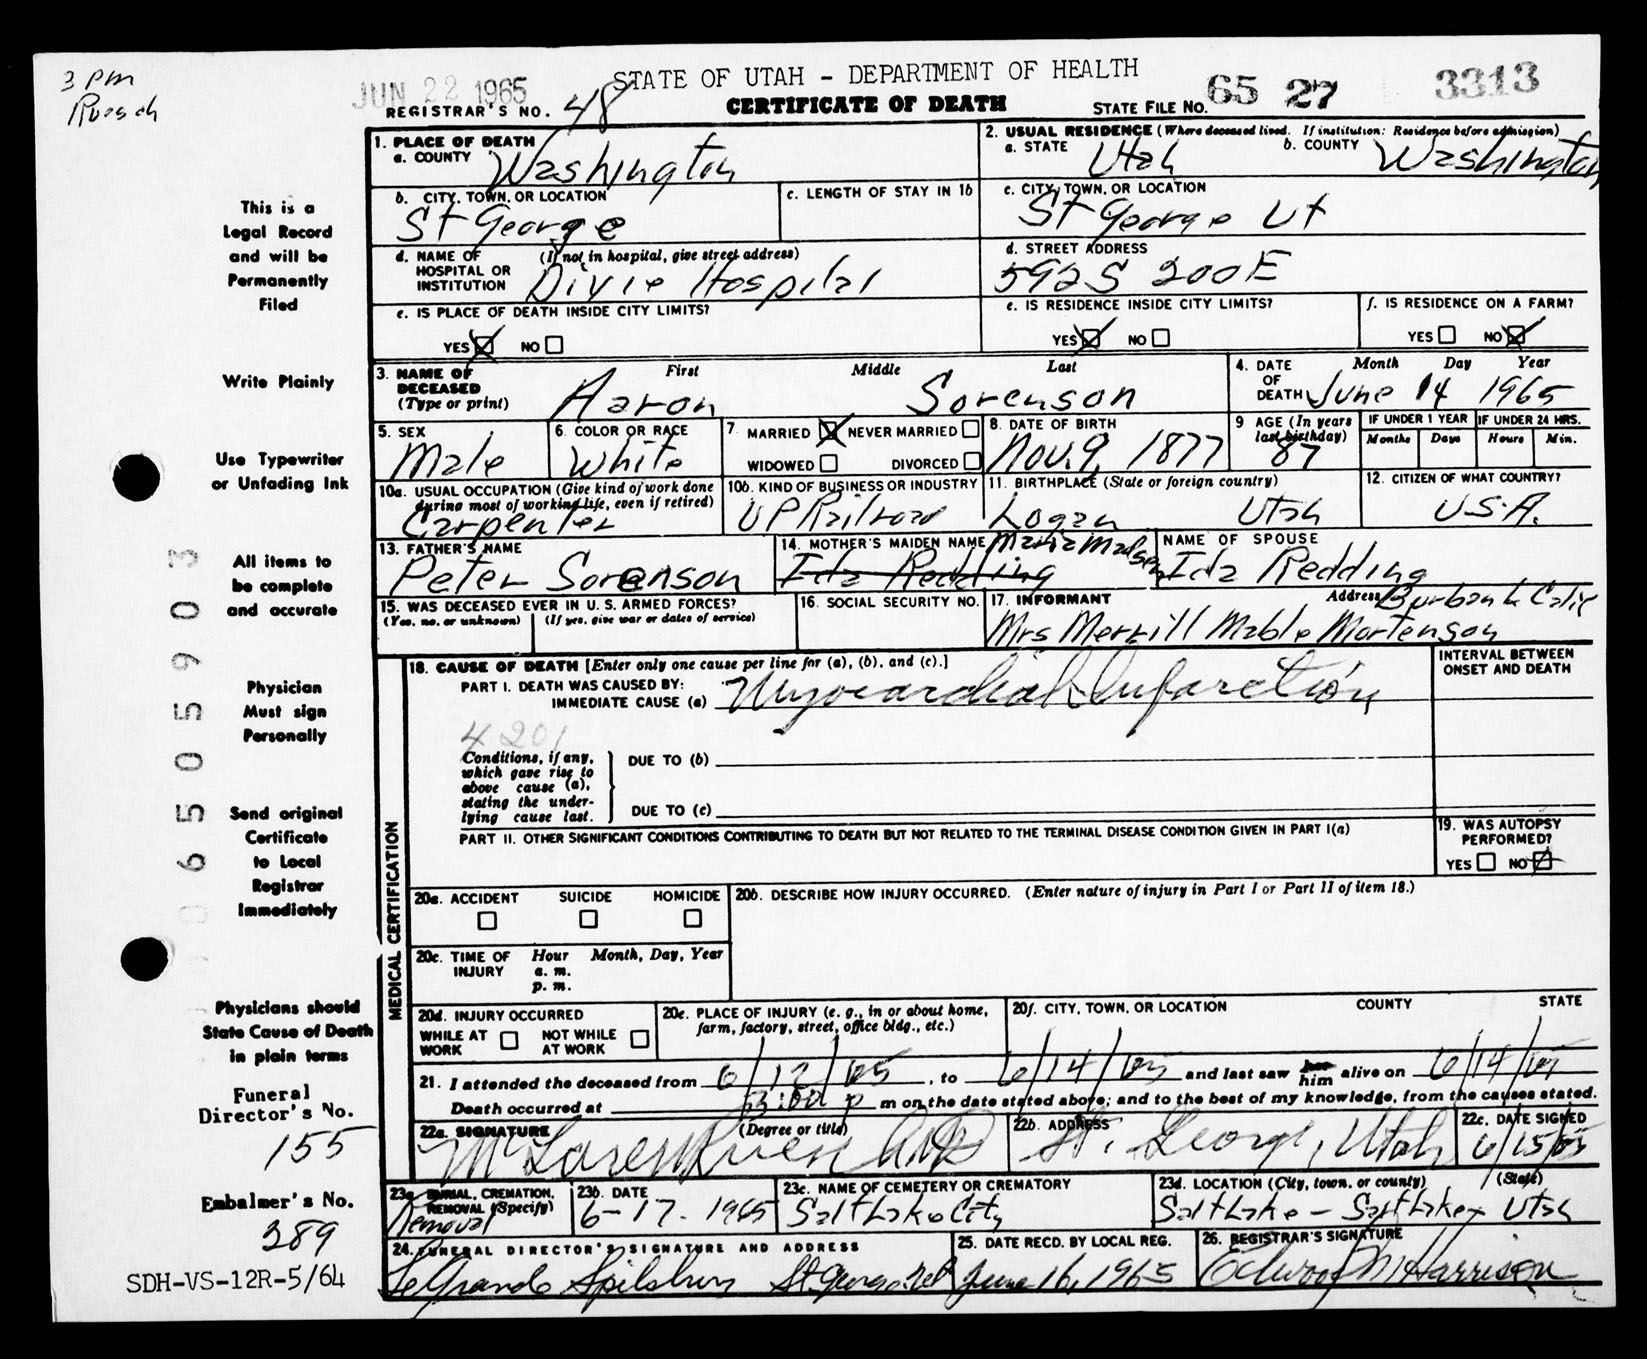 3 PM
JUN 22 1965
STATE OF UTAH - DEPARTMENT OF HEALTH
CERTIFICATE OF DEATH
REGISTRAR'S NO. 48
STATE FILE NO. 65 27 3313
1. PLACE OF DEATH
a. COUNTY Washington
2. USUAL RESIDENCE (Where deceased lived. If institution: Residence before admission)
a. STATE Utah b. COUNTY Washington
b. CITY, TOWN, OR LOCATION St George
c. LENGTH OF STAY IN 1b
c. CITY, TOWN, OR LOCATION St George Ut
d. NAME OF HOSPITAL OR INSTITUTION (If not in hospital, give street address) Dixie Hospital
d. STREET ADDRESS 592 S 200 E
e. IS PLACE OF DEATH INSIDE CITY LIMITS?
YES NO
e. IS RESIDENCE INSIDE CITY LIMITS?
YES NO
f. IS RESIDENCE ON A FARM?
YES NO
3. NAME OF DECEASED (Type or print)
First Middle Last
Aaron Sorenson
4. DATE OF DEATH Month Day Year
June 14 1965
5. SEX Male
6. COLOR OR RACE White
7. MARRIED NEVER MARRIED
WIDOWED DIVORCED
8. DATE OF BIRTH Nov. 9, 1877
9 AGE (In years last birthday) 87
IF UNDER 1 YEAR Months Days
IF UNDER 24 HRS. Hours Min.
10a. USUAL OCCUPATION (Give kind of work done during most of working life, even if retired) Carpenter
10b. KIND OF BUSINESS OR INDUSTRY UP Railroad
11. BIRTHPLACE (State or foreign country) Logan Utah
12. CITIZEN OF WHAT COUNTRY? U.S.A.
13. FATHER'S NAME Peter Sorenson
14. MOTHER'S MAIDEN NAME Maria Madsen
Ida Redding
NAME OF SPOUSE Ida Redding
15. WAS DECEASED EVER IN U.S. ARMED FORCES?
(Yes, no, or unknown) (If yes, give war or dates of service)
16. SOCIAL SECURITY NO.
17. INFORMANT Address Burbank Calif
Mrs Merrill Mable Mortenson
18. CAUSE OF DEATH [Enter only one cause per line for (a), (b), and (c).]
INTERVAL BETWEEN ONSET AND DEATH
PART I. DEATH WAS CAUSED BY:
IMMEDIATE CAUSE (a) Myocardial Infarction
4201
Conditions, if any, which gave rise to above cause (a), stating the underlying cause last.
DUE TO (b)
DUE TO (c)
PART II. OTHER SIGNIFICANT CONDITIONS CONTRIBUTING TO DEATH BUT NOT RELATED TO THE TERMINAL DISEASE CONDITION GIVEN IN PART I(a)
19. WAS AUTOPSY PERFORMED?
YES NO
MEDICAL CERTIFICATION
20a. ACCIDENT SUICIDE HOMICIDE
20b. DESCRIBE HOW INJURY OCCURRED. (Enter nature of injury in Part I or Part II of item 18.)
20c. TIME OF INJURY Hour Month, Day, Year
a. m.
p. m.
20d. INJURY OCCURRED
WHILE AT WORK NOT WHILE AT WORK
20e. PLACE OF INJURY (e. g., in or about home, farm, factory, street, office bldg., etc.)
20f. CITY, TOWN, OR LOCATION COUNTY STATE
21. I attended the deceased from 6/12/65, to 6/14/65 and last saw her him alive on 6/14/65
Death occurred at 3:00 p m on the date stated above; and to the best of my knowledge, from the causes stated.
22a. SIGNATURE (Degree or title)
22b. ADDRESS St. George, Utah
22c. DATE SIGNED 6/15/65
23a. BURIAL, CREMATION, REMOVAL (Specify) Removal
23b. DATE 6-17-1965
23c. NAME OF CEMETERY OR CREMATORY Salt Lake City
23d. LOCATION (City, town, or county) (State) Salt Lake - Salt Lake Utah
24. FUNERAL DIRECTOR'S SIGNATURE AND ADDRESS
LeGrande Spilsbury St. George Ut
25. DATE RECD. BY LOCAL REG. June 16, 1965
26. REGISTRAR'S SIGNATURE
Harrison
This is a
Legal Record
and will be
Permanently
Filed
Write Plainly
Use Typewriter
or Unfading Ink
All items to
be complete
and accurate
Physician
Must sign
Personally
Send original
Certificate
to Local
Registrar
Immediately
Physicians should
State Cause of Death
in plain terms
Funeral
Director's No.
155
Embalmer's No.
289
SDH-VS-12R-5/64
6 5 0 5 9 0 3